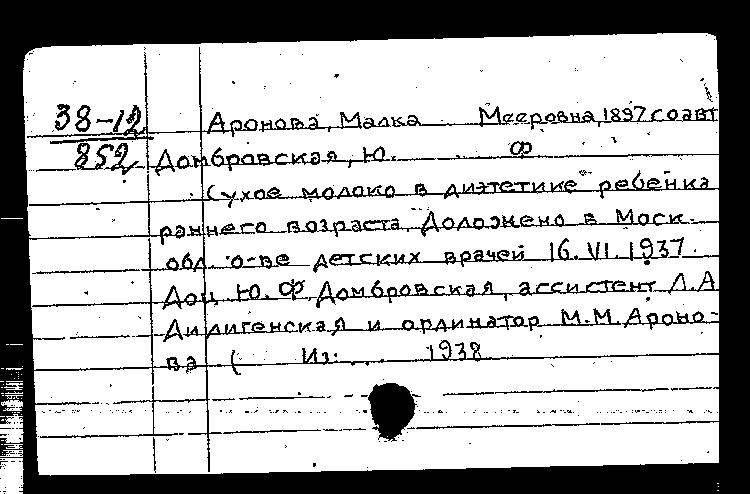 38-12 Аронова, Малка Мееровна, 1897 соавт
852 Домбровская, Ю. Ф
Сухое молоко в диэтетике ребенка
раннего возраста. Доложено в Моск.
обл. о-ве детских врачей 16.VI.1937.
Доц. Ю.Ф Домбровская, ассистент Л.А
Дилигенская и ординатор М.М. Ароно-
ва ( Из: ... 1938